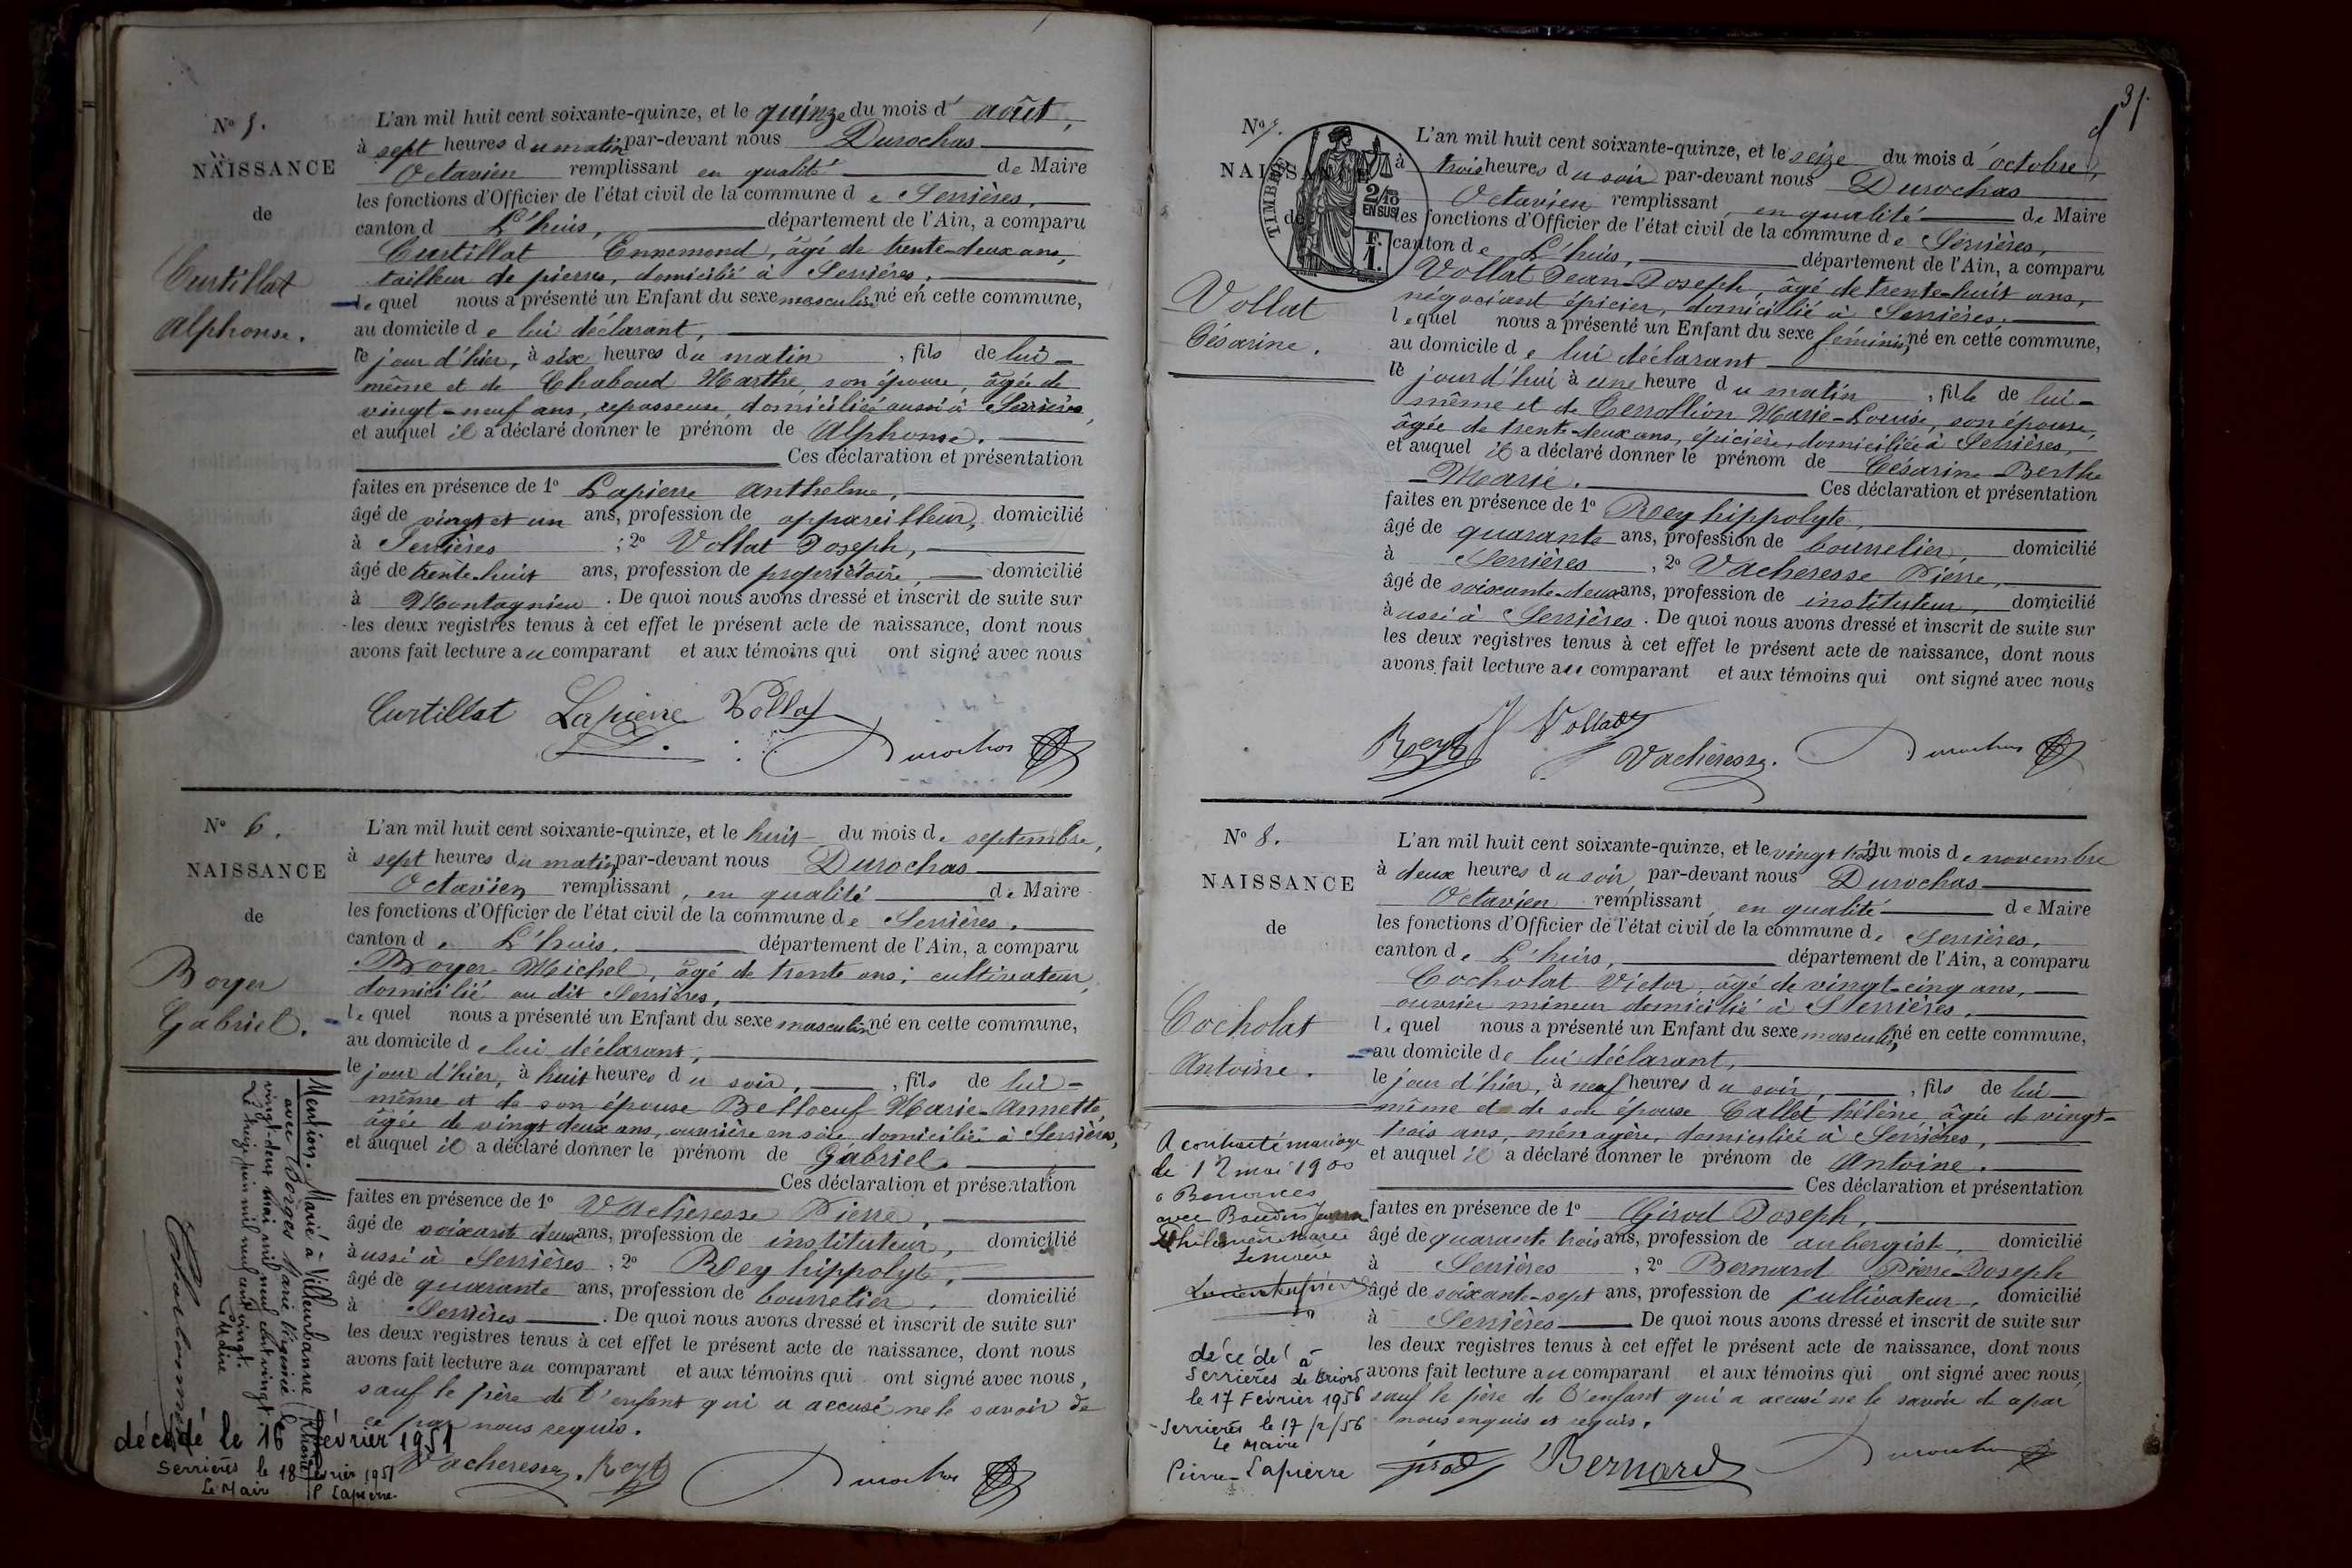 N° 5.
NAISSANCE
de
Curtillat
Alphonse.
L'an mil huit cent soixante-quinze, et le quinze du mois d'août,
à sept heures du matin par-devant nous Durochas
Octavien remplissant en qualité de Maire
les fonctions d'Officier de l'état civil de la commune de Serrières,
canton d L'huis, département de l'Ain, a comparu
Curtillat Ennemond, âgé de trente-deux ans,
tailleur de pierres, domicilié à Serrières.
lequel nous a présenté un Enfant du sexe masculin né en cette commune,
au domicile de lui déclarant,
le jour d'hier, à six heures du matin, fils de lui-
même et de Chaboud Marthe, son épouse, âgée de
vingt-neuf ans, repasseuse, domiciliée aussi à Serrières,
et auquel il a déclaré donner le prénom de Alphonse.
Ces déclaration et présentation
faites en présence de 1° Lapierre Anthelme,
âgé de vingt et un ans, profession de appareilleur, domicilié
à Serrières ; 2° Vollat Joseph,
âgé de trente-huit ans, profession de propriétaire, domicilié
à Montagnieu. De quoi nous avons dressé et inscrit de suite sur
les deux registres tenus à cet effet le présent acte de naissance, dont nous
avons fait lecture au comparant et aux témoins qui ont signé avec nous
Curtillat Lapierre Vollat
Durochas
N° 6.
NAISSANCE
de
Boyer
Gabriel.
L'an mil huit cent soixante-quinze, et le huit du mois de septembre,
à sept heures du matin par-devant nous Durochas
Octavien remplissant, en qualité de Maire
les fonctions d'Officier de l'état civil de la commune de Serrières.
canton de L'huis. département de l'Ain, a comparu
Boyer Michel, âgé de trente ans, cultivateur,
domicilié au dit Serrières,
lequel nous a présenté un Enfant du sexe masculin né en cette commune,
au domicile de lui déclarant,
le jour d'hier, à huit heures du soir, fils de lui-
même et de son épouse Belloeuf Marie-Annette,
âgée de vingt deux ans, ouvrière en soie, domiciliée à Serrières,
et auquel il a déclaré donner le prénom de Gabriel.
Ces déclaration et présentation
faites en présence de 1° Vacheresse Pierre,
âgé de soixante deux ans, profession de instituteur, domicilié
aussi à Serrières, 2° Rey hippolyte,
âgé de quarante ans, profession de bourrelier, domicilié
à Serrières. De quoi nous avons dressé et inscrit de suite sur
les deux registres tenus à cet effet le présent acte de naissance, dont nous
avons fait lecture au comparant et aux témoins qui ont signé avec nous,
sauf le père de l'enfant qui a accusé ne le savoir de
ce par nous requis.
Vacheresse. Rey
Durochas
Mention. Marié à Villeurbanne (Rhône)
avec Borges Marie Virginie le
vingt-deux mai mil neuf cent vingt.
Le treize juin mil neuf cent vingt.
Le Maire
décédé le 16 février 1951
Serrières le 18 février 1951
Le Maire
P Lapierre
31.
N° 7.
NAISSANCE
de
TIMBRE
2/10 EN SUS
F. 1.
Vollat
Césarine.
L'an mil huit cent soixante-quinze, et le seize du mois d'octobre,
à trois heures du soir par-devant nous Durochas
Octavien remplissant, en qualité de Maire
les fonctions d'Officier de l'état civil de la commune de Serrières,
canton de L'huis, département de l'Ain, a comparu
Vollat Jean-Joseph, âgé de trente-huit ans,
négociant épicier, domicilié à Serrières.
lequel nous a présenté un Enfant du sexe féminin, né en cette commune,
au domicile de lui déclarant
le jour d'hui à une heure du matin, fille de lui-
même et de Cerrollion Marie-Louise, son épouse,
âgée de trente-deux ans, épicière, domiciliée à Serrières,
et auquel il a déclaré donner le prénom de Césarine-Berthe
Marie. Ces déclaration et présentation
faites en présence de 1° Rey hippolyte,
âgé de quarante ans, profession de bourrelier, domicilié
à Serrières, 2° Vacheresse Pierre,
âgé de soixante-deux ans, profession de instituteur, domicilié
aussi à Serrières. De quoi nous avons dressé et inscrit de suite sur
les deux registres tenus à cet effet le présent acte de naissance, dont nous
avons fait lecture au comparant et aux témoins qui ont signé avec nous
Rey Vollat
Vacheresse. Durochas
N° 8.
NAISSANCE
de
Cocholat
Antoine.
L'an mil huit cent soixante-quinze, et le vingt trois du mois de novembre
à deux heures du soir par-devant nous Durochas
Octavien remplissant, en qualité de Maire
les fonctions d'Officier de l'état civil de la commune de Serrières.
canton de L'huis, département de l'Ain, a comparu
Cocholat Victor, âgé de vingt-cinq ans,
ouvrier mineur domicilié à Serrières.
lequel nous a présenté un Enfant du sexe masculin, né en cette commune,
au domicile de lui déclarant,
le jour d'hier, à neuf heures du soir, fils de lui-
même et de son épouse Callet hélène, âgée de vingt-
trois ans, ménagère, domiciliée à Serrières,
et auquel il a déclaré donner le prénom de Antoine.
Ces déclaration et présentation
faites en présence de 1° Girod Joseph,
âgé de quarante trois ans, profession de aubergiste, domicilié
à Serrières, 2° Bernard Pierre-Joseph
âgé de soixante-sept ans, profession de cultivateur, domicilié
à Serrières De quoi nous avons dressé et inscrit de suite sur
les deux registres tenus à cet effet le présent acte de naissance, dont nous
avons fait lecture au comparant et aux témoins qui ont signé avec nous,
sauf le père de l'enfant qui a accusé ne le savoir de a par
nous enquis et requis.
Girod Bernard Durochas
A contracté mariage
le 12 mai 1900
à Benonces
avec Baudin
Philomène Marie
Le maire
décédé à
Serrières de Briord
le 17 Février 1956
Serrières le 17/2/56
Le Maire
Pierre Lapierre